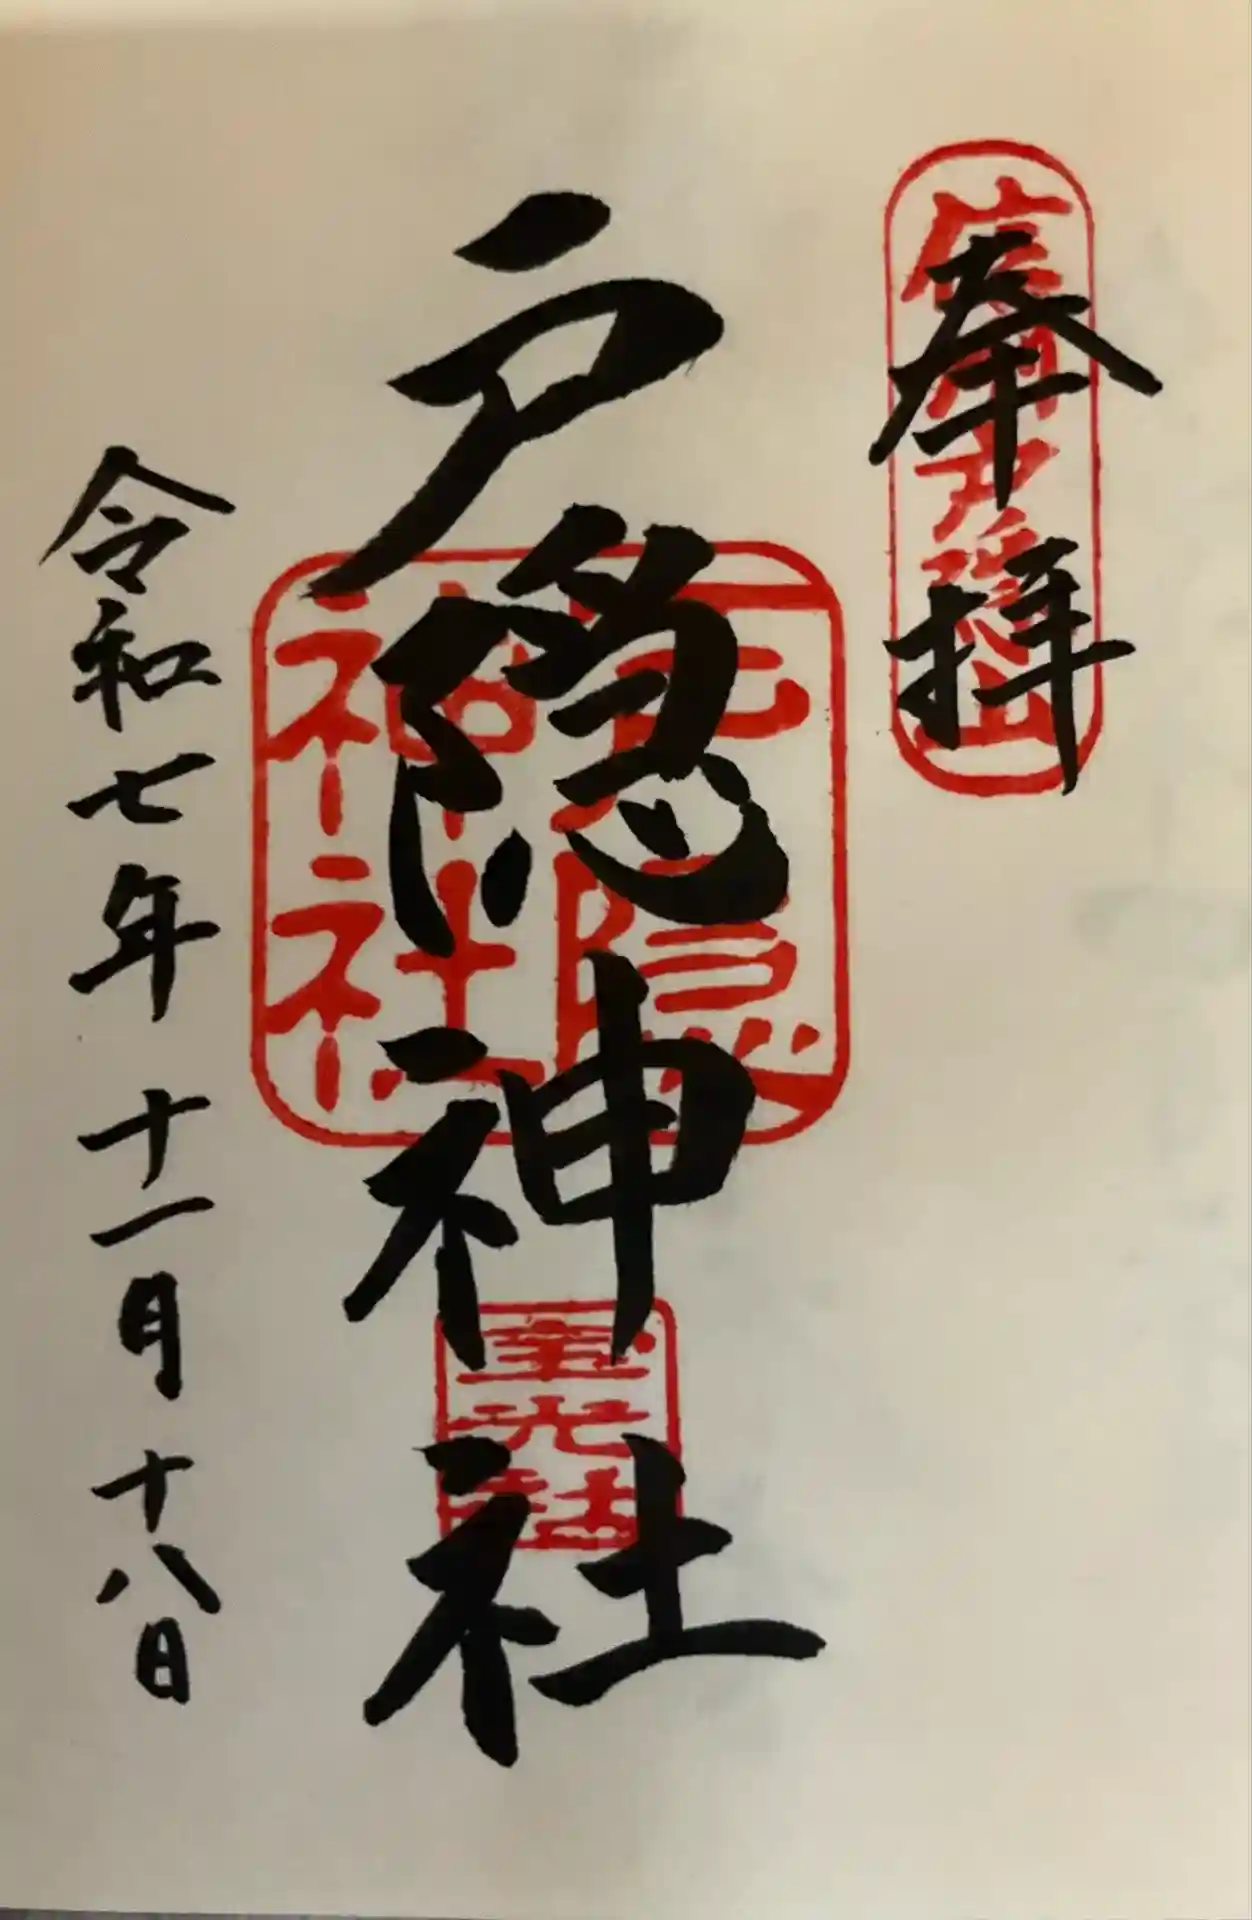 奉拝
信州戸隠山
戸隠神社
戸隠
神社
宝光社
令和七年十一月十八日